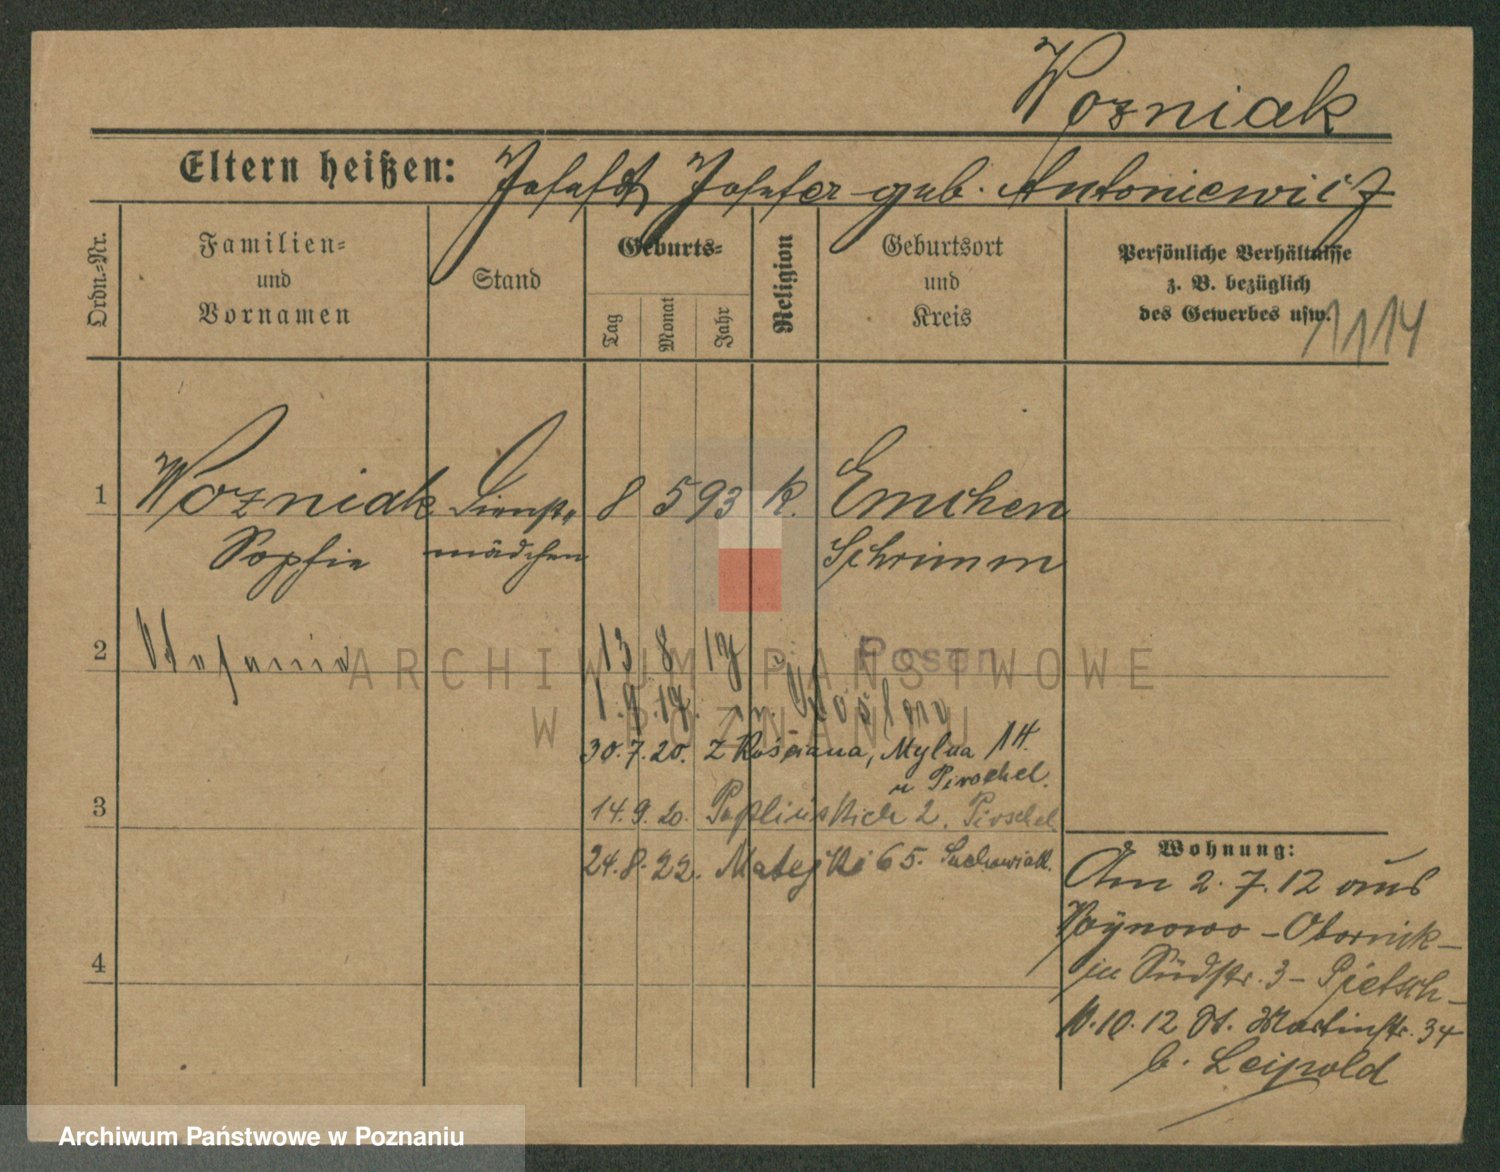 Wozniak
Eltern heißen: Josefa geb. Antoniewicz
Ordn.=Nr.
Familien=
und
Vornamen
Stand
Geburts=
Tag
Monat
Jahr
Religion
Geburtsort
und
Kreis
Persönliche Verhältnisse
z. B. bezüglich
des Gewerbes usw.
1114
1 Wozniak Dienst= 8 5 93 k. Emchen
Sophie mädchen Schrimm
2 Stefania 13 8 17 Posen
1.9.17.
30.7.20. z Kościana, Mylna 14.
u Piroschel.
3 14.9.20. Poplińskich 2. Piroschel
24.8.22. Matejki 65. Suchowiak.
Wohnung:
Am 2.7.12 aus
Woynowo - Obornik -
in Südstr. 3 - Pietsch -
10.12 St. Martinstr. 34
b. Leipold
4
ARCHIWUM PAŃSTWOWE
W POZNANIU
Archiwum Państwowe w Poznaniu